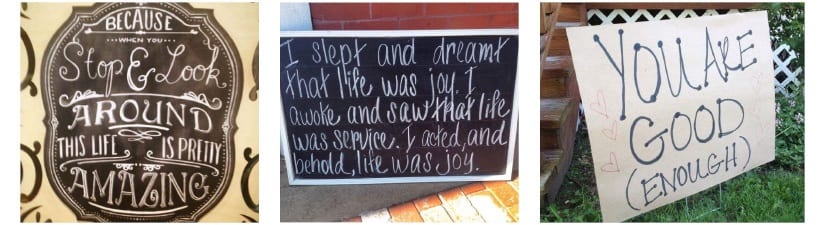 BECAUSE
WHEN YOU
Stop & Look
AROUND
THIS LIFE IS PRETTY
AMAZING
I slept and dreamt
that life was joy. I
awoke and saw that life
was service. I acted, and
behold, life was joy.
YOU ARE
GOOD
(ENOUGH)